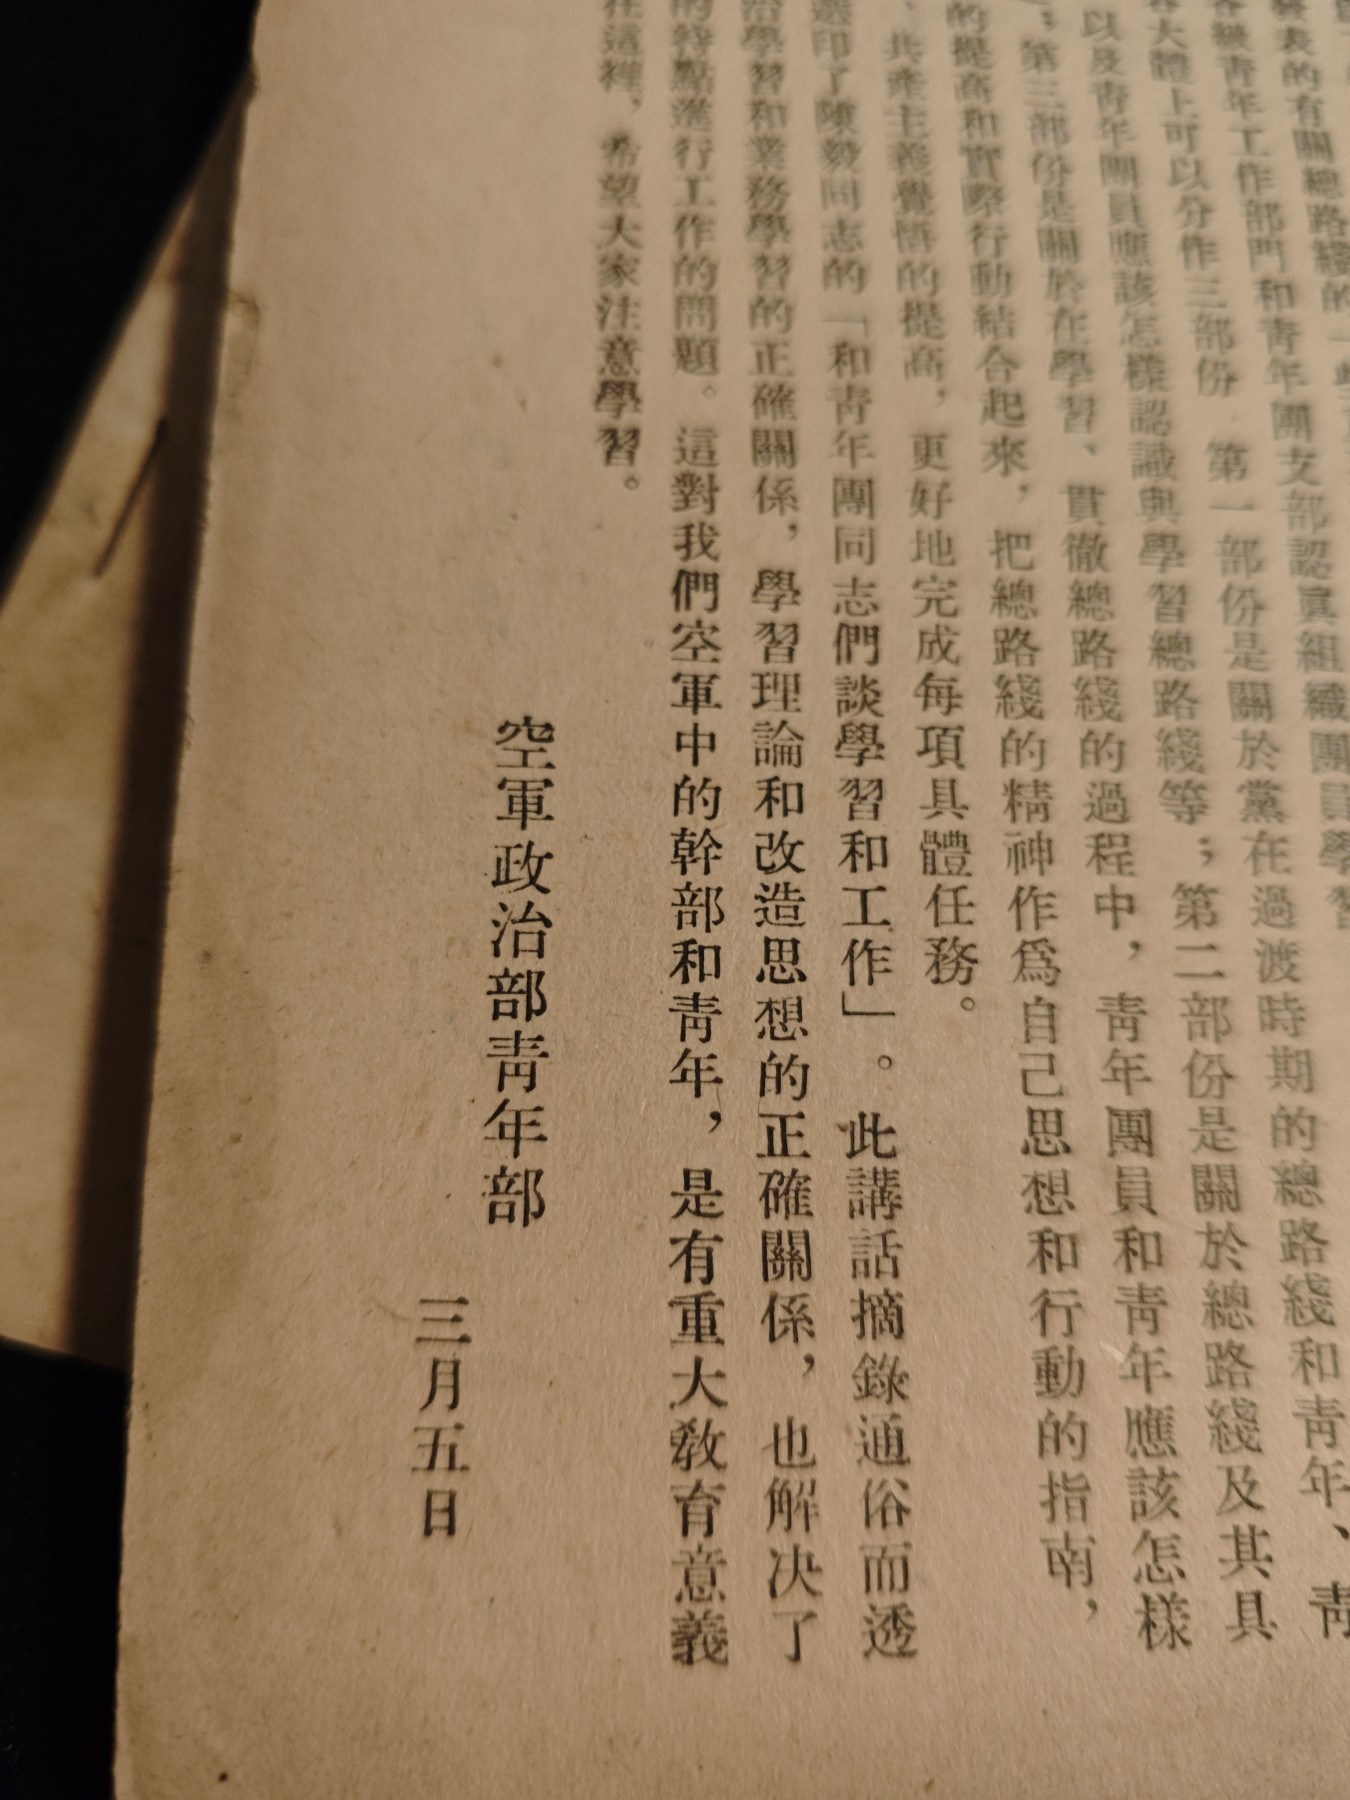 表的有關總路綫的一些
各級青年工作部門和青年團支部認眞組織團員學習
大體上可以分作三部份 第一部份是關於黨在過渡時期的總路綫和青年、靑
以及青年團員應該怎樣認識與學習總路綫等；第二部份是關於總路綫及其具
；第三部份是關於在學習、貫徹總路綫的過程中，靑年團員和靑年應該怎樣
的提高和實際行動結合起來，把總路綫的精神作爲自己思想和行動的指南，
、共產主義覺悟的提高，更好地完成每項具體任務。
選印了陳毅同志的「和靑年團同志們談學習和工作」。此講話摘錄通俗而透
治學習和業務學習的正確關係，學習理論和改造思想的正確關係，也解决了
的特點進行工作的問題。這對我們空軍中的幹部和靑年，是有重大敎育意義
在這裡，希望大家注意學習。
空軍政治部靑年部
三月五日